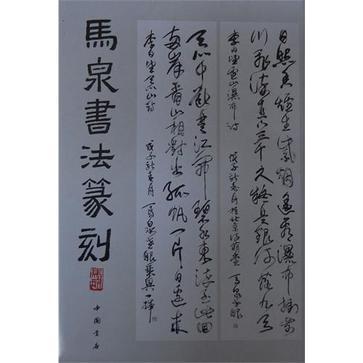 馬泉書法篆刻
中国書店
日照香爐生紫烟遥看瀑布掛前
川飛流直下三千尺疑是銀河落九天
李白望廬山瀑布诗
天門中斷楚江開碧水東流至此回
兩岸青山相對出孤帆一片日邊來
李白望天門山诗